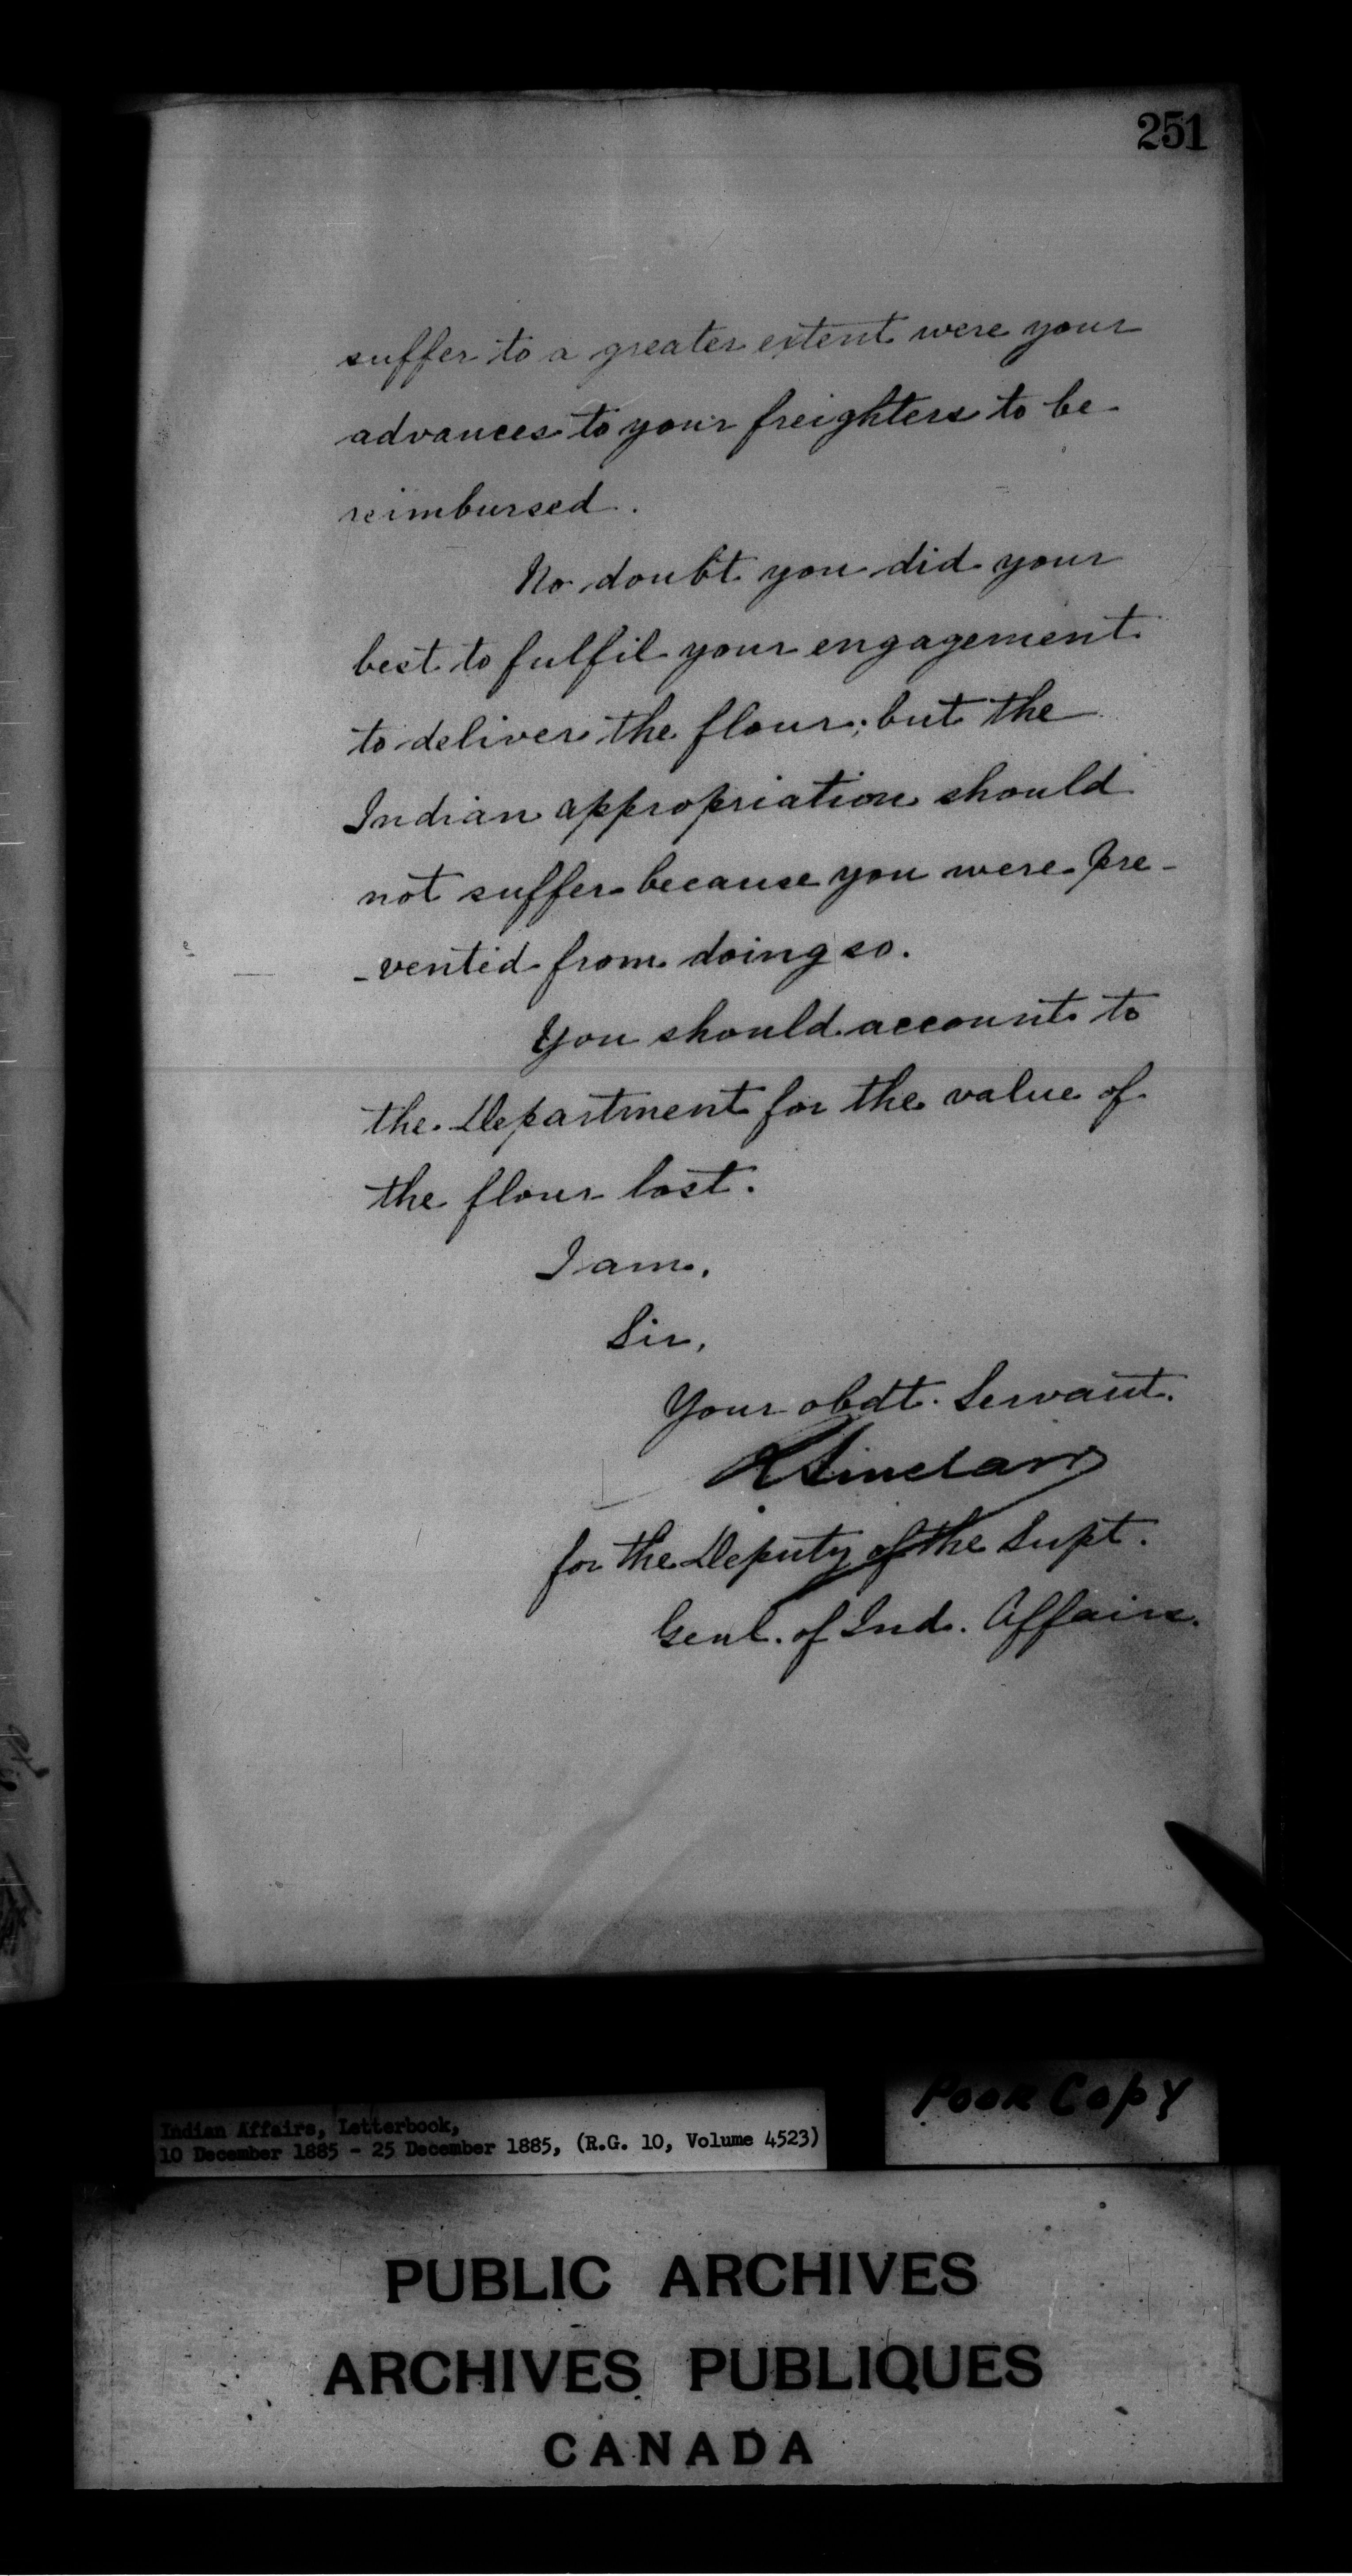 251
suffer to a greater extent were your
advances to your freighters to be
reimbursed.
No doubt you did your
best to fulfil your engagement
to deliver the flour; but the
Indian appropriation should
not suffer because you were pre-
-vented from doing so.
You should account to
the Department for the value of
the flour lost.
I am,
Sir,
Your obdt. Servant.
R Sinclair
for the Deputy of the Supt.
Genl. of Ind. Affairs.
Poor Copy
Indian Affairs, Letterbook,
10 December 1885 - 25 December 1885, (R.G. 10, Volume 4523)
PUBLIC ARCHIVES
ARCHIVES PUBLIQUES
CANADA